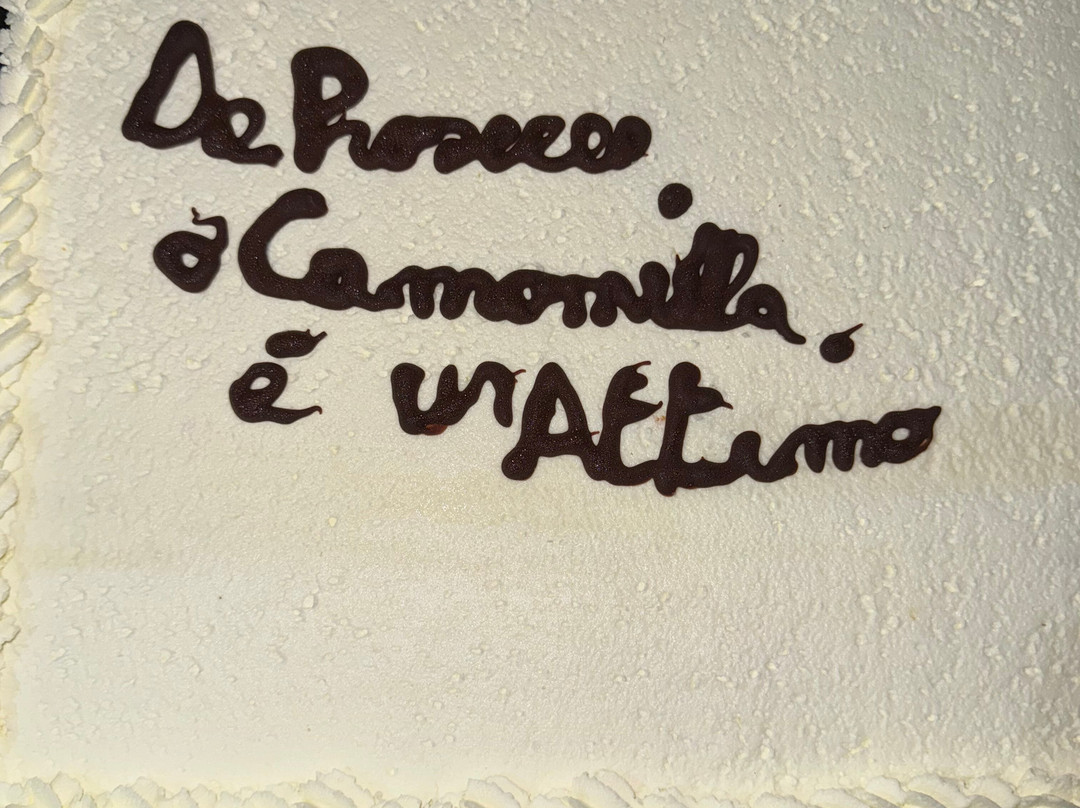 Da Prosecco
a Camomilla,
è un Attimo